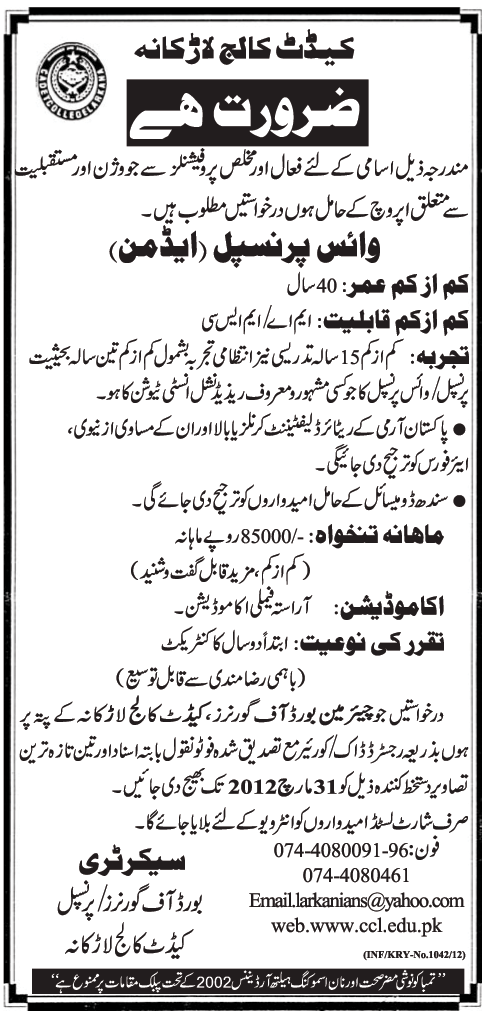 کیڈٹ کالج لاڑکانہ
CADET COLLEGE LARKANA
ضرورت ھے
مندرجہ ذیل اسامی کے لئے فعال اور مخلص پروفیشنلز سے جو وژن اور مستقبلیت
سے متعلق اپروچ کے حامل ہوں درخواستیں مطلوب ہیں۔
وائس پرنسپل (ایڈمن)
کم از کم عمر: 40 سال
کم ازکم قابلیت: ایم اے/ ایم ایس سی
تجربہ: کم از کم 15 سالہ تدریسی نیز انتظامی تجربہ بشمول کم از کم تین سالہ بحیثیت
پرنسپل/ وائس پرنسپل کا جو کسی مشہور و معروف ریذیڈنشل انسٹی ٹیوشن کا ہو۔
● پاکستان آرمی کے ریٹائرڈ لیفٹیننٹ کرنلز یا بالا اور ان کے مساوی از نیوی،
ایئر فورس کو ترجیح دی جائیگی۔
● سندھ ڈومیسائل کے حامل امیدواروں کو ترجیح دی جائے گی۔
ماھانہ تنخواہ: -/85000 روپے ماہانہ
(کم از کم، مزید قابل گفت و شنید)
اکاموڈیشن: آراستہ فیملی اکاموڈیشن۔
تقرر کی نوعیت: ابتدأ دو سال کا کنٹریکٹ
(باہمی رضامندی سے قابل توسیع)
درخواستیں جو چیئرمین بورڈ آف گورنرز، کیڈٹ کالج لاڑکانہ کے پتہ پر
ہوں بذریعہ رجسٹرڈ ڈاک/ کورئیر مع تصدیق شدہ فوٹو نقول بابتہ اسناد اور تین تازہ ترین
تصاویر دستخط کنندہ ذیل کو 31 مارچ 2012 تک بھیج دی جائیں۔
صرف شارٹ لسٹڈ امیدواروں کو انٹرویو کے لئے بلایا جائے گا۔
فون: 96-4080091-074
074-4080461
Email.larkanians@yahoo.com
web.www.ccl.edu.pk
سیکرٹری
بورڈ آف گورنرز/ پرنسپل
کیڈٹ کالج لاڑکانہ
(INF/KRY-No.1042/12)
"تمباکو نوشی مضر صحت اور نان اسموکنگ ہیلتھ آرڈیننس 2002 کے تحت پبلک مقامات پر ممنوع ہے"